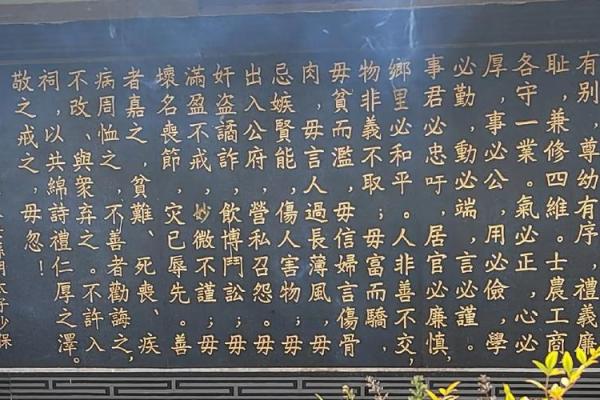 有別 尊幼有序，禮義廉
恥，兼修四維。士農工商
各守一業。氣必正，心必
厚，事必公，用必儉，學
必勤，動必端，言必謹。
事君必忠吁，居官必廉慎，
鄉里必和平。人非善不交，
物非義不取；毋富而驕，
毋貧而濫，毋信婦言傷骨
肉，毋言人過長薄風，毋
忌嫉賢能，傷人害物；毋
出入公府，營私召怨。毋
奸盜譎詐，飲博鬥訟；毋
滿盈不戒，妙微不謹；毋
壞名喪節，灾已辱先。善
者嘉之，貧難、死喪、疾
病周恤之，不善者勸誨之，
不改，與衆弃之。不許入
祠，以共綿詩禮仁厚之澤。
敬之戒之，毋忽！